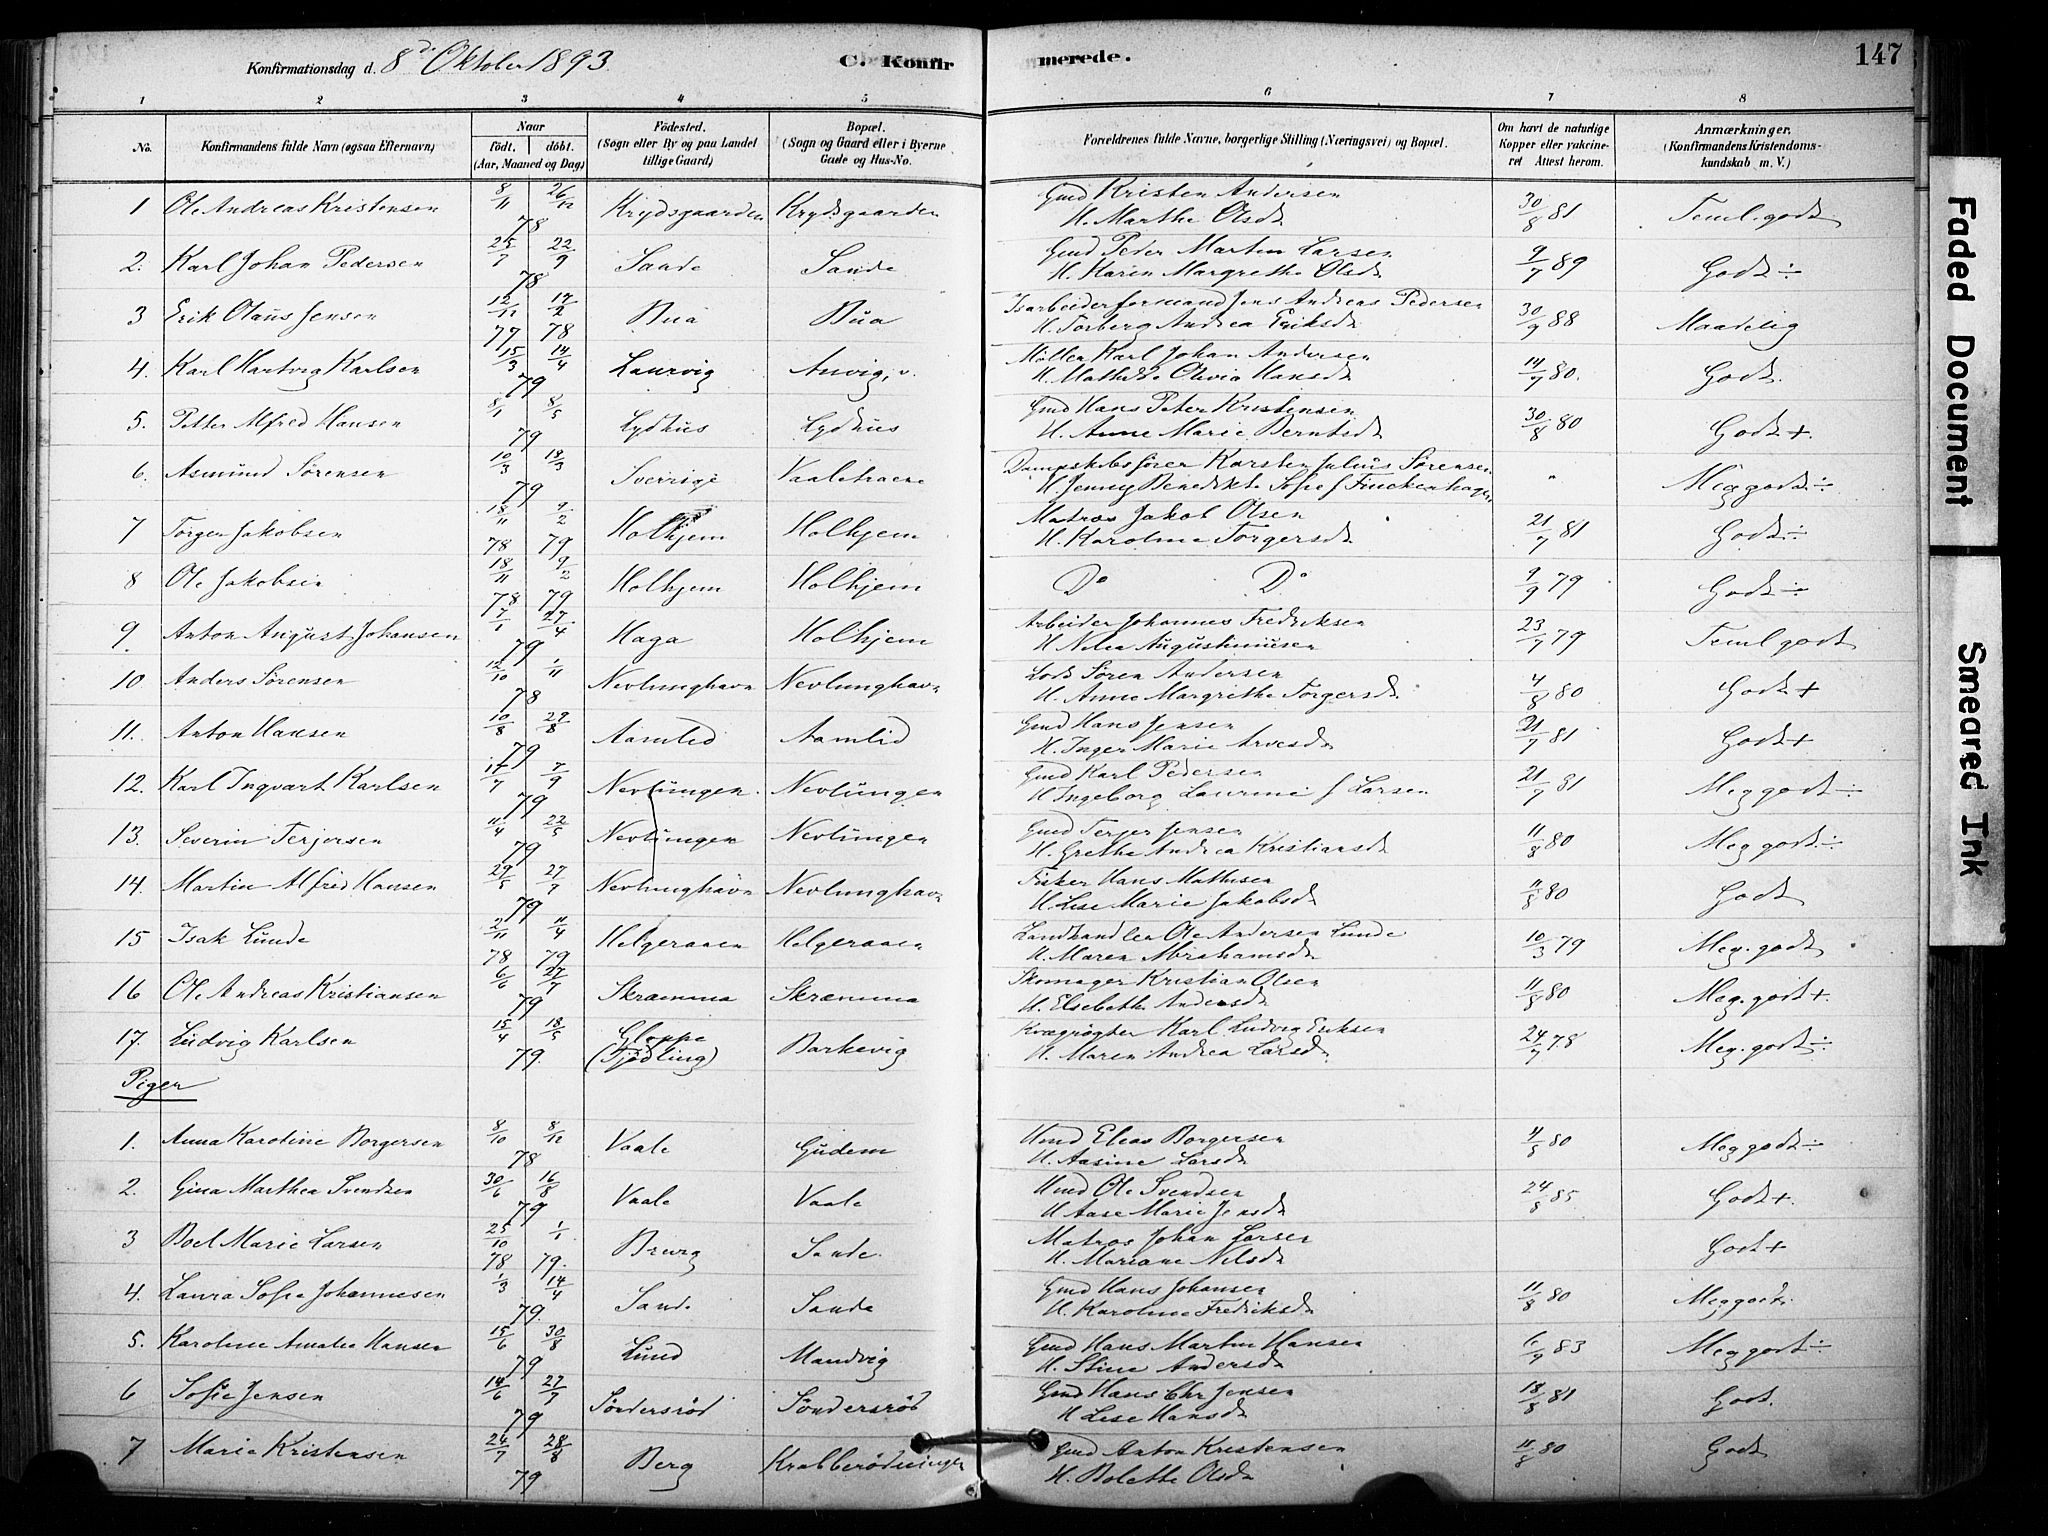 Konfirmationsdag d. 8de Oktober 1893. C. Konfirmerede. 147
1 2 3 4 5 6 7 8
No. Konfirmandens fulde Navn (ogsaa Efternavn) Naar født, døbt. (Aar, Maaned og Dag) Födested. (Sogn eller By og paa Landet tillige Gaard) Bopæl. (Sogn og Gaard eller i Byerne Gade og Hus-No. Forældrenes fulde Navne, borgerlige Stilling (Næringsvei) og Bopæl. Om havt de naturlige Kopper eller vakcineret Attest herom. Anmærkninger. (Konfirmandens Kristendomskundskab m. V.)
1 Ole Andreas Kristensen 8/11 26/12 78 Krydsgaarden Krydsgaarden Gmd Kristen Andersen H. Marthe Olsdr 30/8 81 Teml. godt
2. Karl Johan Pedersen 25/7 22/9 78 Sande Sande Gmd Peder Martin Larsen H. Karen Margrethe Olsdr 9/7 89 Godt ÷
3 Erik Olaus Jensen 12/12 77 17/2 78 Bua Bua Isarbeiderformand Jens Andreas Pedersen H. Torberg Andrea Eriksdr 30/9 88 Maadelig
4. Karl Hartvig Karlsen 15/3 14/4 79 Laurvig Anvig, v. Møller Karl Johan Andersen H. Mathilde Olivia Hansdr 14/7 80. Godt.
5. Petter Alfred Hansen 8/1 8/5 79 Lydhus Lydhus Gmd Hans Peter Kristensen H. Anne Marie Berntsdr 30/8 80 Godt +
6. Asmund Sørensen 10/3 18/3 79 Sverrige Vaaletraene Dampskibsfører Karsten Julius Sørensen H. Jenny Benedikte Sofie f Finckenhagen " Meg godt ÷
7 Torger Jakobsen 18/11 78 9/2 79 Holhjem Holhjem Matros Jakob Olsen H. Karoline Torgersdr 21/7 81 Godt ÷
8 Ole Jakobsen 18/11 78 9/2 79 Holhjem Holhjem Do Do 9/9 79 Godt ÷
9. Anton August Johansen 7/1 27/4 79 Haga Holhjem Arbeider Johannes Fredriksen H Nilia Augustinusen 23/7 79 Teml godt
10 Anders Sørensen 12/10 1/11 78 Nevlunghavn Nevlunghavn Lods Sören Andersen H. Anne Margrethe Torgersdr 4/8 80 Godt +
11. Anton Hansen 10/8 29/8 79 Aamlid Aamlid Gmd Hans Jensen H. Inger Marie Arvesdr 21/7 81 Godt +
12. Karl Ingvart Karlsen 17/7 7/9 79 Nevlungen. Nevlungen Gmd Karl Pedersen H Ingeborg Laurine f Larsen 21/7 81 Meg godt ÷
13. Severin Terjersen 11/4 22/5 79 Nevlungen Nevlungen Gmd Terjer Jensen H. Grethe Andrea Kristiansdr 11/8 80 Meg godt ÷
14. Martin Alfred Hansen 29/5 27/7 79 Nevlunghavn Nevlunghavn Fisker Hans Mathisen H. Lise Marie Jakobsdr 11/8 80 Godt
15 Isak Lunde 2/11 78 11/4 79 Helgeraaen Helgeraaen Landhandler Ole Andersen Lunde H. Maren Abrahamsdr 10/3 79 Meg. godt
16 Ole Andreas Kristiansen 6/6 27/7 79 Skræmma Skræmma Skomager Kristian Olsen H. Elsebeth Andersdr 11/8 80 Meg. godt +.
17. Ludvig Karlsen 15/4 18/5 79. Gloppe (Tjødling) Barkevig Kvægrögter Karl Ludvig Eriksen H. Maren Andrea Larsdr 24/7 78 Meg. godt ÷
Piger
1. Anna Karoline Borgersen 8/10 8/12 78 Vaale Gudem Hmd Elias Borgersen H. Aasine Larsdr 4/8 80 Meg godt ÷
2. Gina Marthea Svendsen 30/6 16/8 79 Vaale Vaale Hmd Ole Svendsen H Aase Marie Jensdr 24/8 85. Godt +.
3 Boel Marie Larsen 25/10 78 1/1 79. Brurg Sande. Matros Johan Larsen H. Mariane Nilsdr Godt +
4. Laura Sofie Johannesen 1/3 14/4 79. Sande Sande Gmd Hans Johansen H Karoline Fredriksdr 11/8 80 Meg godt.
5. Karoline Amalie Hansen 15/6 30/8 79 Lund Mandvig Gmd Hans Martin Hansen H. Stine Andersdr 6/9 83 Meg godt ÷
6 Sofie Jensen 14/6 27/7 79 Söndersröd Söndersröd Gmd Hans Chr Jensen H Lise Hansdr 18/8 81 Godt.
7 Marie Kristensen 24/7 28/8 79 Berg Krabberödningen Gmd Anton Kristensen H. Bolette Olsdr 11/8 80 Godt
Faded Document
Smeared Ink